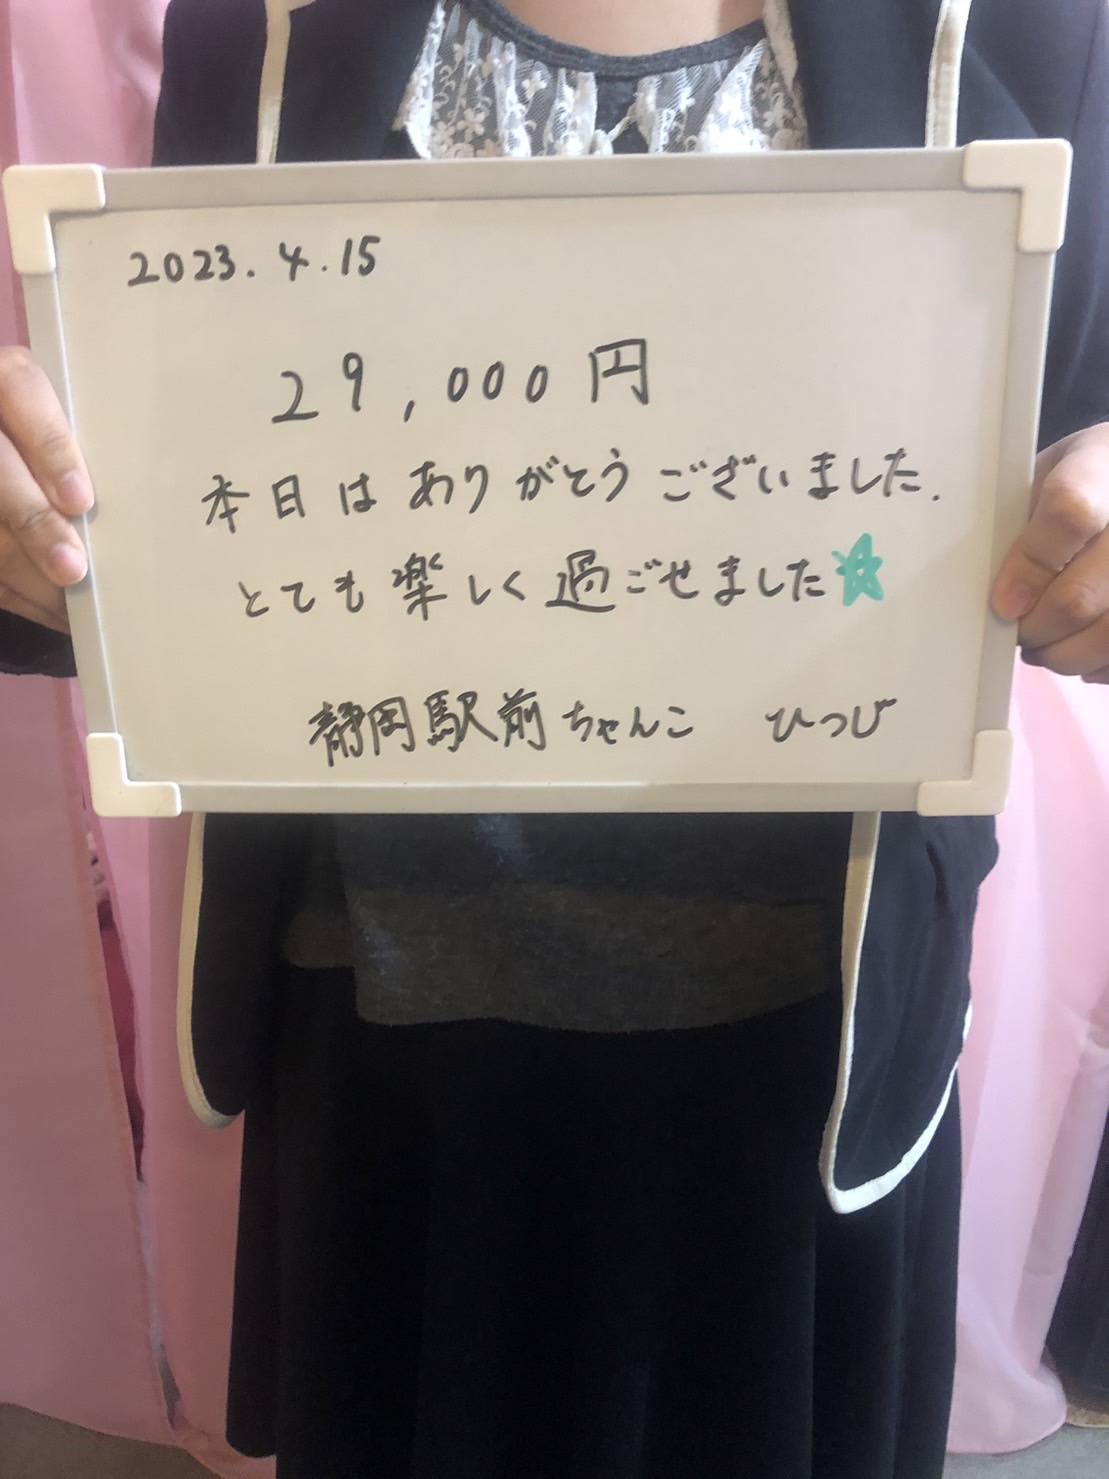 2023.4.15
29,000円
本日はありがとうございました.
とても楽しく過ごせました☆
静岡駅前ちゃんこ ひつじ